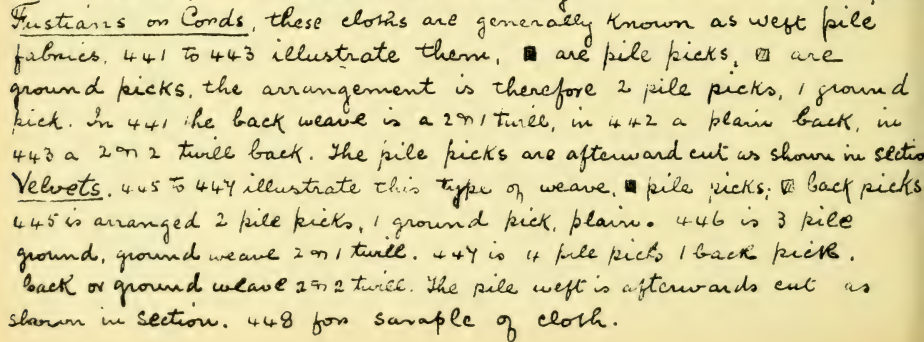 Fustians or Cords, these cloths are generally known as weft pile
fabrics. 441 to 443 illustrate them, ■ are pile picks, ▨ are
ground picks, the arrangement is therefore 2 pile picks, 1 ground
pick. In 441 the back weave is a 2 on 1 twill, in 442 a plain back, in
443 a 2 on 2 twill back. The pile picks are afterward cut as shown in sectio
Velvets. 445 to 447 illustrate this type of weave, ■ pile picks, ▨ back picks
445 is arranged 2 pile picks, 1 ground pick, plain. 446 is 3 pile
ground, ground weave 2 on 1 twill. 447 is 4 pile picks 1 back pick.
back or ground weave 2 on 2 twill. The pile weft is afterwards cut as
shown in section. 448 for sample of cloth.